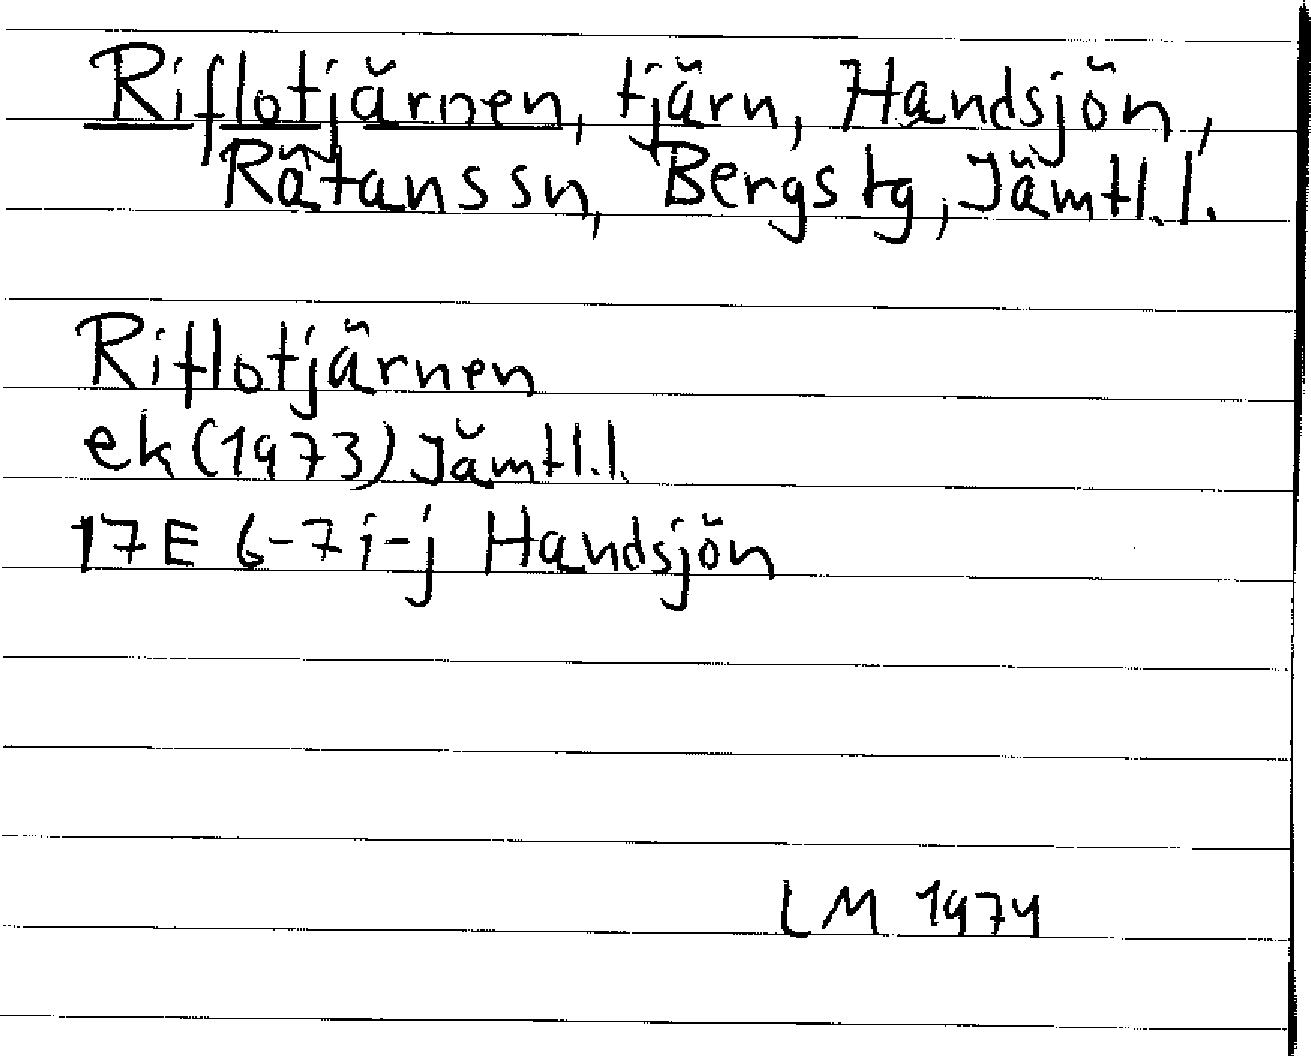 Riflotjärnen, tjärn, Handsjön,
Rätanssn, Bergstg, Jämtl. l.
Riflotjärnen
ek (1973) Jämtl. l.
17E 6-7 i-j Handsjön
LM 1974